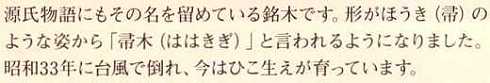 源氏物語にもその名を留めている銘木です。形がほうき（帚）の
ような姿から「帚木（ははきぎ）」と言われるようになりました。
昭和33年に台風で倒れ、今はひこ生えが育っています。